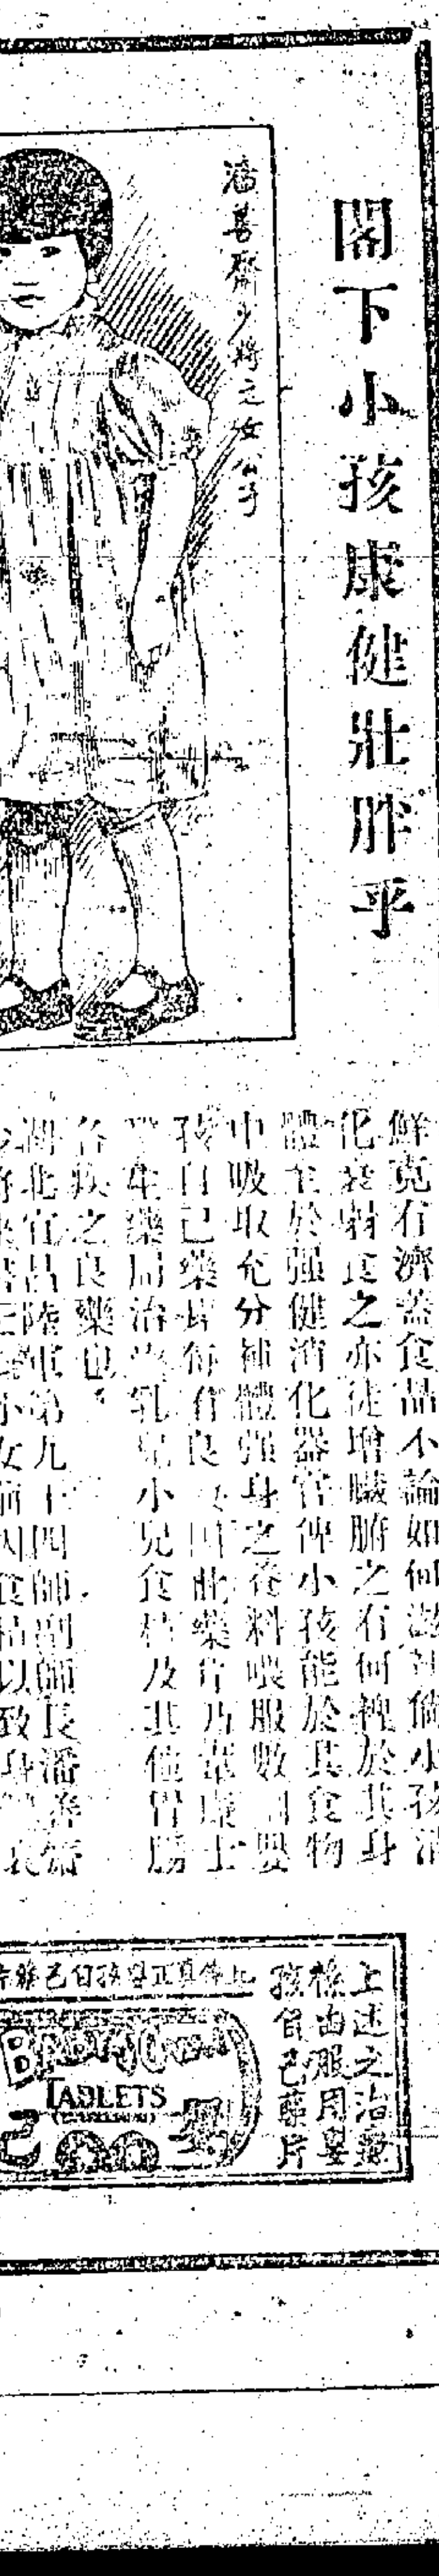 閣下小孩康健壯胖乎
潘善齋少將之女公子
鮮克有濟蓋食品不論如何滋補倘小孩消
化衰弱食之亦徒增臟腑之有何裨於其身
體至於强健消化器官俾小孩能於其食物
中吸取充分補體强身之養料喂服數嬰
孩自己藥片每有良此藥片乃韋廉士
藥局治嬰乳兒小兒食積及其他胃腸
各疾之良藥也
湖北宜昌陸軍第九十四師副師長潘善齋
少將來小女前因食積以致身衰
上述之治療
係由服用嬰
孩自己藥片
上係真正嬰孩自己藥片
BABY'S OWN
TABLETS